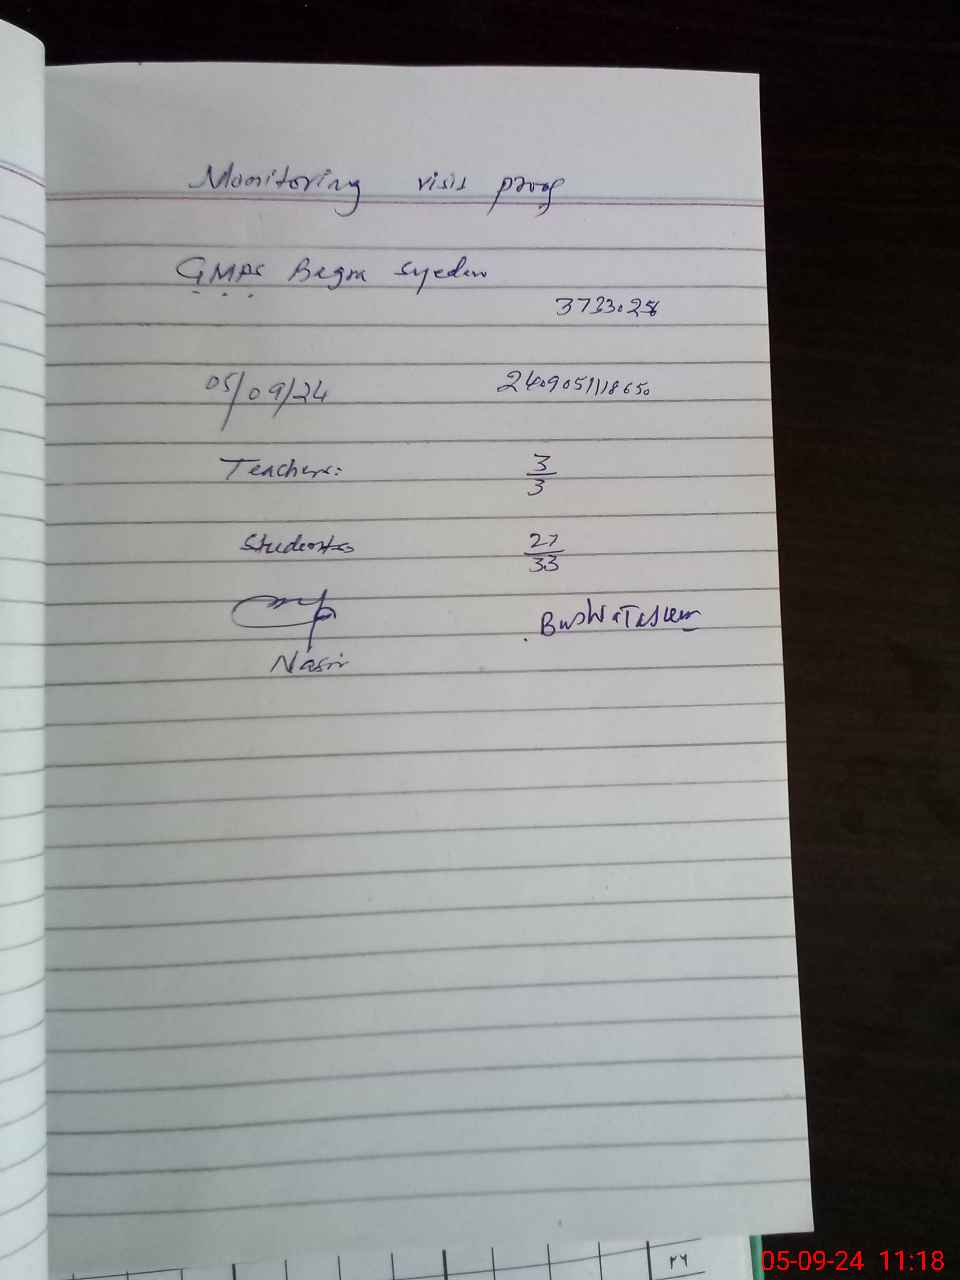 Monitoring visit proof
GMPS Bagra Syedan
3733028
05/09/24 240905111865০
Teachers: 3/3
Students 27/33
Nasir Bushra Tasleem
۲۶
05-09-24 11:18